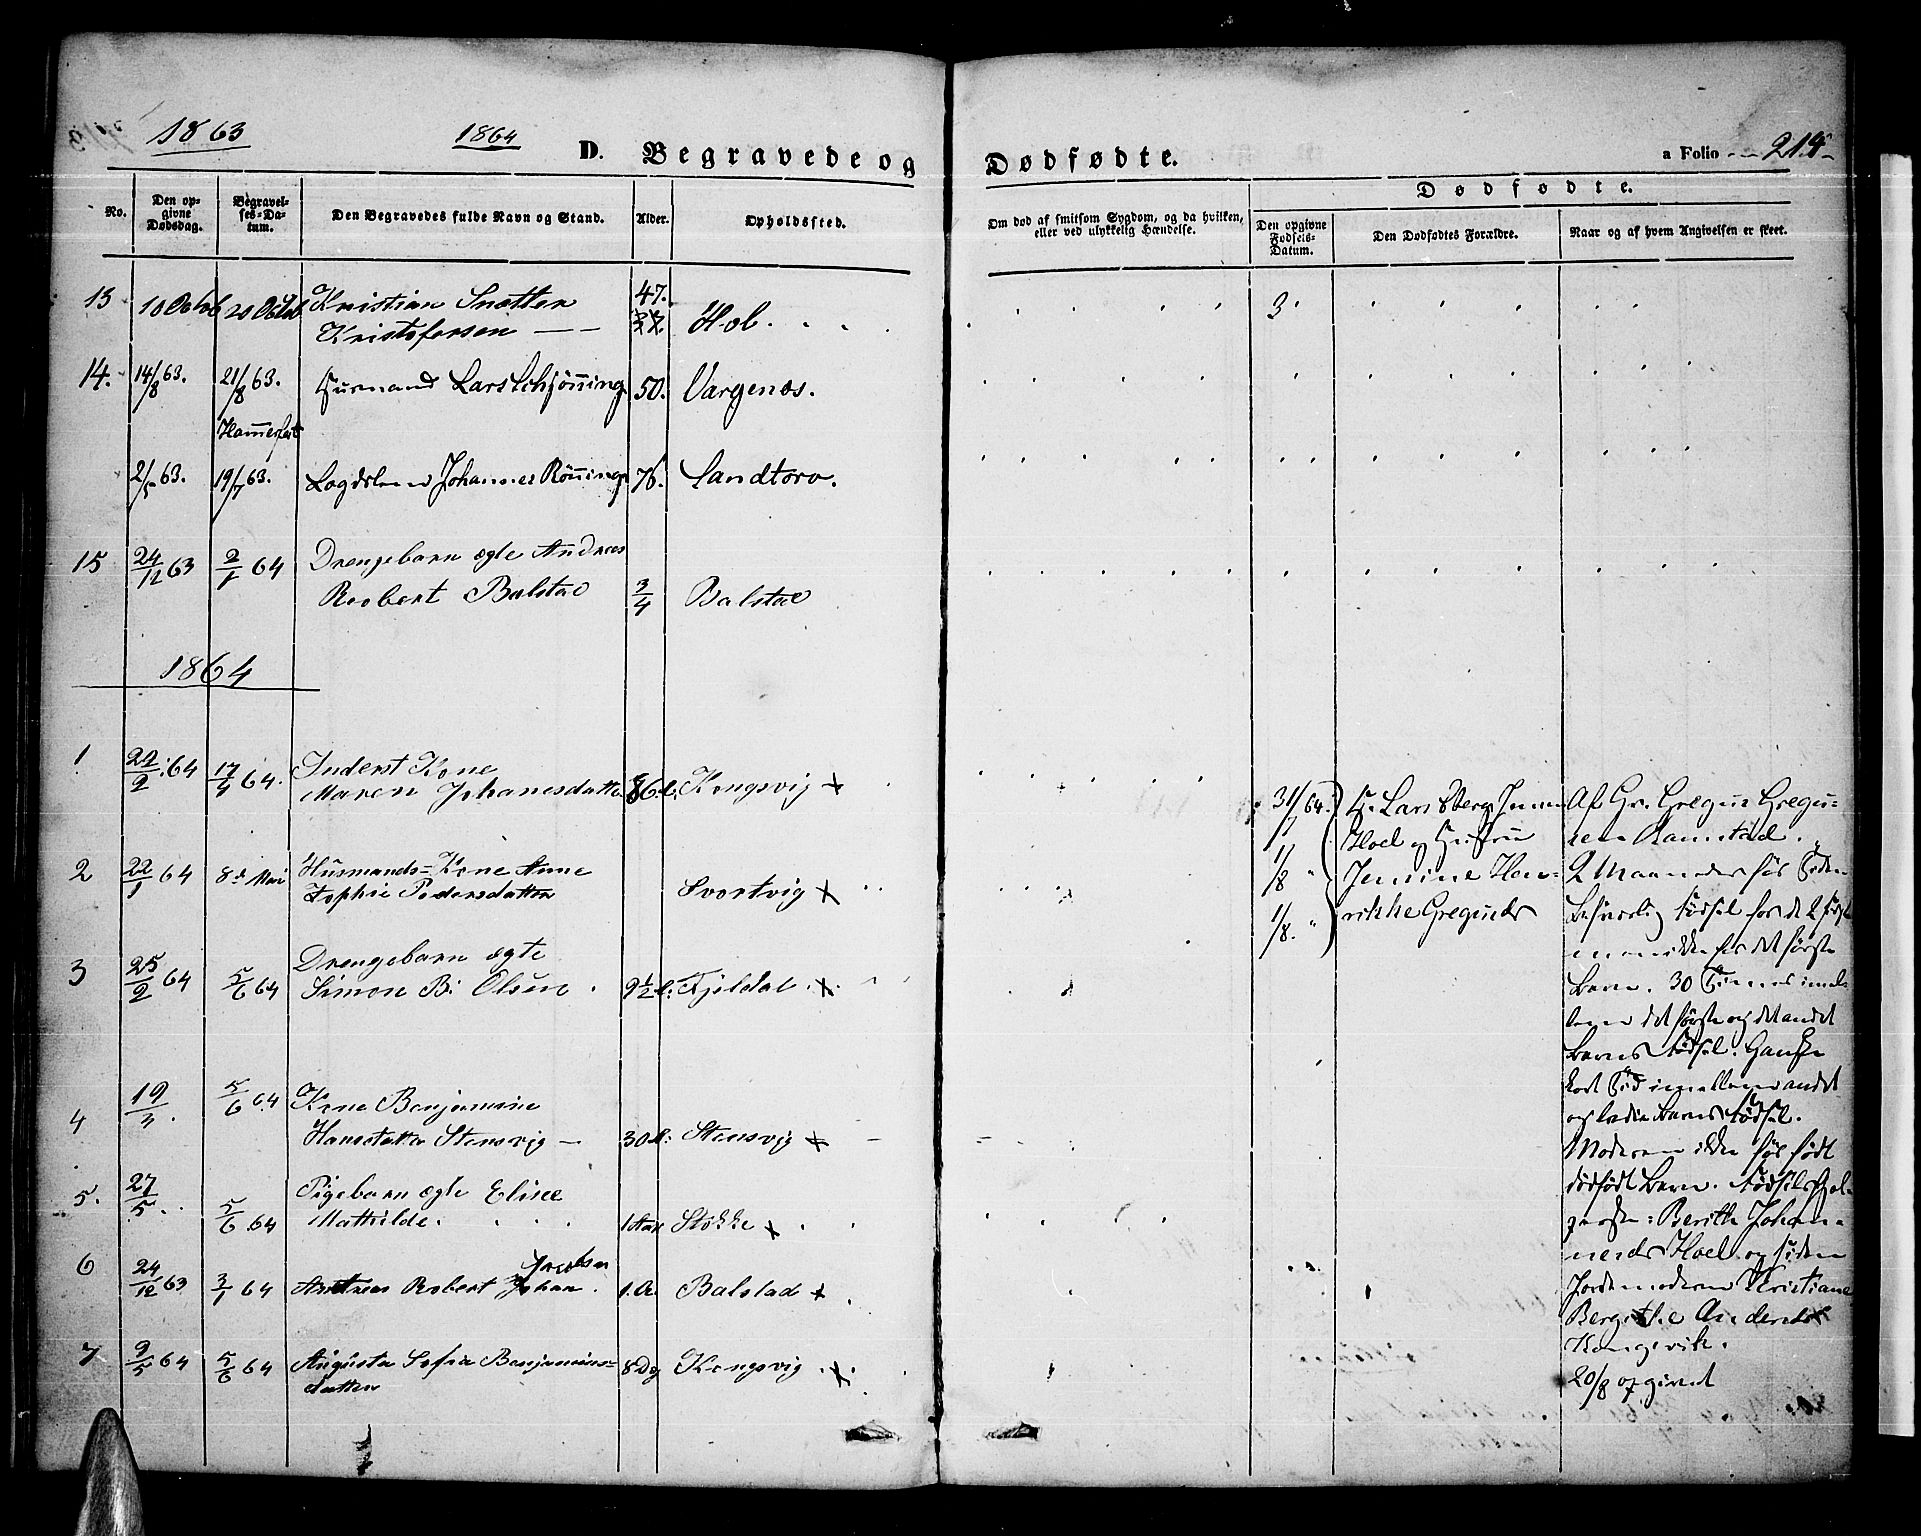 1863 1864 D. Begravede og Dødfødte. a Folio 214
Dødfødte.
No. Den opgivne Dødsdag. Begravelses-Datum. Den Begravedes fulde Navn og Stand. Alder. Opholdssted. Om død af smitsom Sygdom, og da hvilken, eller ved ulykkelig Hændelse. Den opgivne Fødsels-Datum. Den Dødfødtes Forældre. Naar og af hvem Angivelsen er skeet.
13 10 Octob 20 Octob Kristian
Kristofersen 47. Hol. 3
14. 14/8 63. 21/8 63. Lars Schjønning 50. Vargenes.
Hammerfest
2/5 63. 19/7 63. Johannes Rønning 76. Sandtorv.
15 24/12 63 2/1 64 Drengebarn ægte Andreas
Robert Balstad 3/4 Balstad
1864
1. 22/2 64 17/4 64. Inderst Kone
Maren Johanesdatter 86 Kongsvig
2 22/1 64 8de Mai Husmands-Kone Anne
Sophie Pedersdatter Svortvig
3 25/2 64 5/6 64 Drengebarn ægte
Simon B. Olsen 9 1/2 Fjeldal
4 19/3. 5/6 64 Kone Benjamine
Hansdatter Stensvig 30 Stensvig
5. 27/5 5/6 64 Pigebarn ægte Elise
Mathilde. 1 Aar Stokke
6 24/12 63 3/1 64 Andreas Robert Johan 1. A. Balstad
7 9/5 64 5/6 64 Augusta Sofia Benjamins-
datter 8 Dg Kongsvig
31/7 64. Lars Berg
Hoel og Hustru
1/8 " Jensine Hen-
1/8. " rikke Greguisd
Af Gr. Gregus Gregu-
sen Ramstad.
2 Maaneder før Tiden
Fødsel for de 2
men ikke for det første
Barn. 30 Timer imel-
lem det første og det andet
Barns Fødsel. Ganske
kort Tid imellem andet
og sidste Barns Fødsel.
Moderen ikke før født
dødfødt Barn. Fødselshjæl-
perske: Berith Johan-
nesd Hoel og siden
Jordemoderen Kristiane
Bergithe Andersd
Kongsvik.
20/8 opgivet